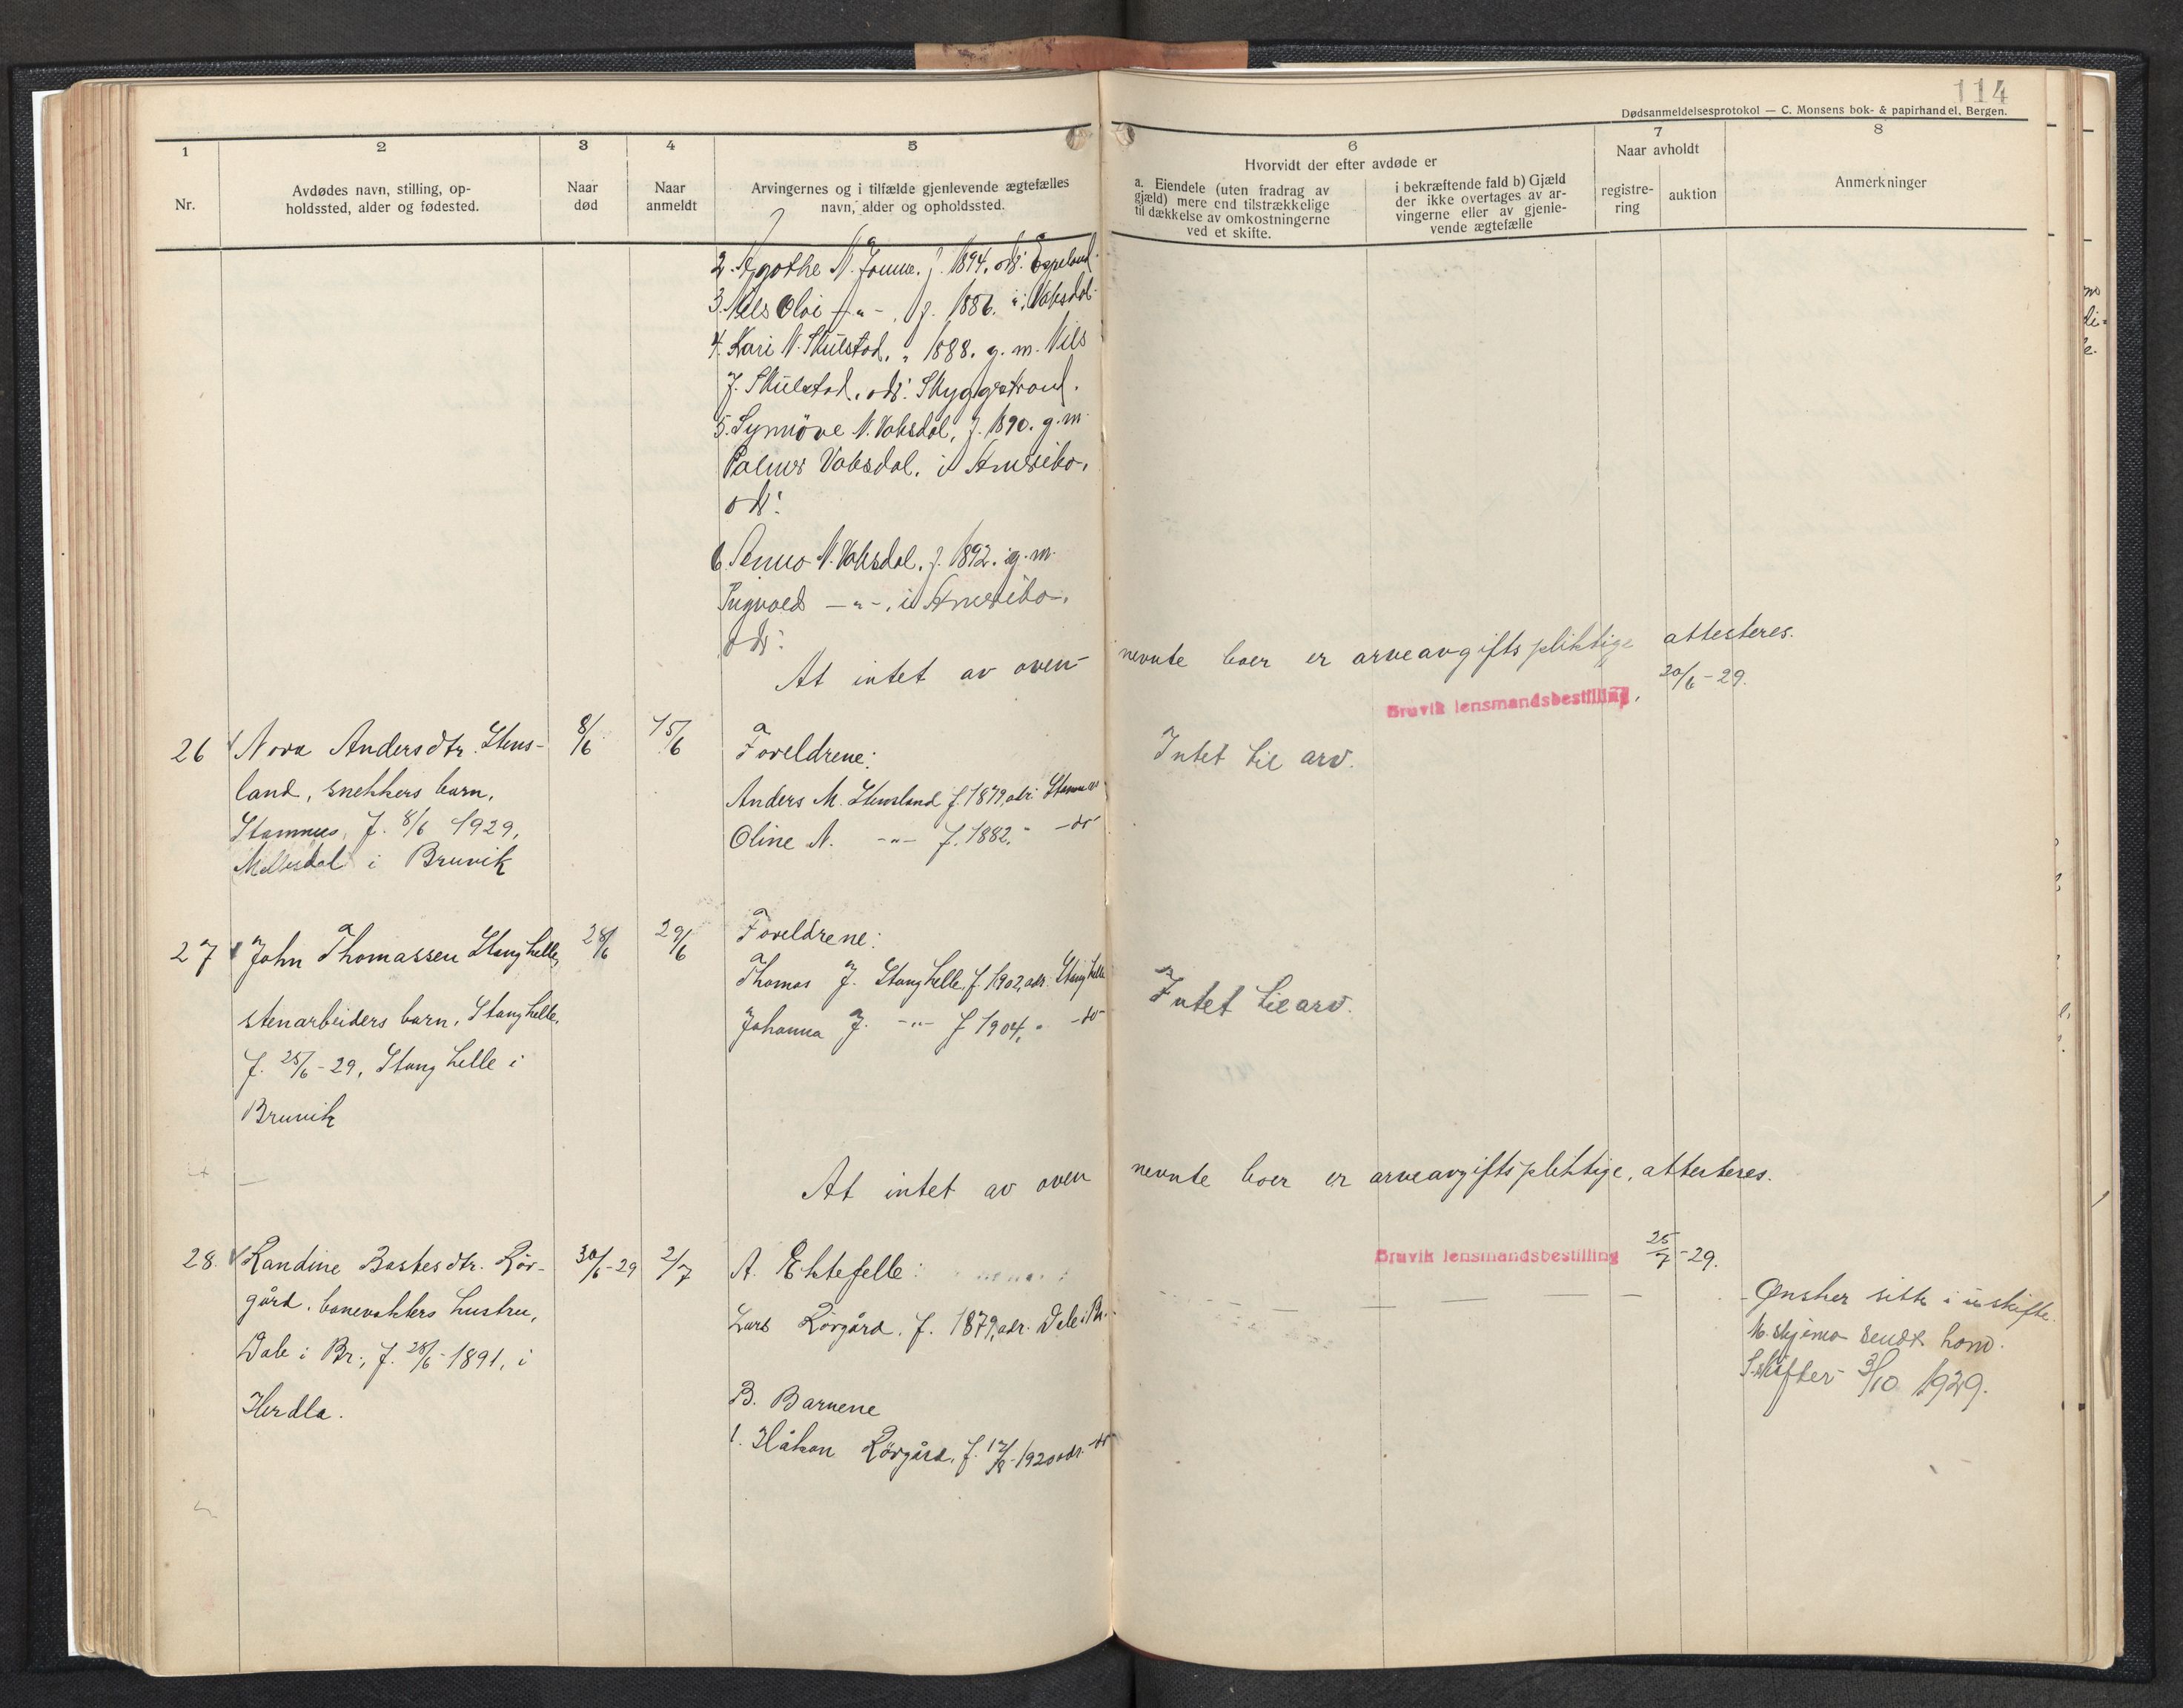 114
Dødsanmeldelsesprotokol — C. Monsens bok- & papirhandel, Bergen.
1
Nr.
2
Avdødes navn, stilling, op-
holdssted, alder og fødested.
3
Naar
død
4
Naar
anmeldt
5
Arvingernes og i tilfælde gjenlevende ægtefælles
navn, alder og opholdssted.
6
Hvorvidt der efter avdøde er
a. Eiendele (uten fradrag av
gjæld) mere end tilstrækkelige
til dækkelse av omkostningerne
ved et skifte.
i bekræftende fald b) Gjæld
der ikke overtages av ar-
vingerne eller av gjenle-
vende ægtefælle
7
Naar avholdt
registre-
ring
auktion
8
Anmerkninger
2. Agothe N. f. 1894. adr:
3. Nels Olai -"-, f. 1886. " Vaksdal.
4. Kari N. Skulstad. " 1888. g. m. Nils
J. Skulstad, adr: Skyggestrand.
5. Synnöve N. Vaksdal, f. 1890. g. m.
Palmer Vaksdal. i Amerika.
adr:
6. N. Vaksdal. f. 1892. g. m.
Ingvald -"-, i Amerika.
adr:
At intet av oven- nevnte boer er arveavgiftspliktige attesteres.
Bruvik lensmandsbestilling, 20/6-29.
26 Nora Andersdtr. Stens-
land, snekkers barn,
Stamnes, f. 8/6 1929,
i Bruvik
8/6
15/6
Foreldrene:
Anders M. Stensland f. 1879, adr. Stamnes
Oline N. -"- f. 1882. " -do-
Intet til arv.
27 John Thomassen Stanghelle,
stenarbeiders barn, Stanghelle,
f. 25/6-29, Stanghelle i
Bruvik
28/6
29/6
Foreldrene:
Thomas J. Stanghelle, f. 1902, adr. Stanghelle
Johanna J. -"- f 1904, " -do-
Intet til arv.
At intet av oven nevnte boer er arveavgiftspliktige, attesteres.
Bruvik lensmandsbestilling 25/7-29.
28. Randine Bastesdtr. Rör-
gård, banevokters hustru,
Dale i Br., f. 28/6-1891, i
Herdla.
30/6-29
2/7
A. Ektefelle:
Lars Rörgård, f. 1879, adr. Dale i Br.
B. Barnene
1. Håkon Rörgård, f. 1920 adr. do
Ønsker sitte i uskifte.
skjema sendt ham.
3/10 1929.